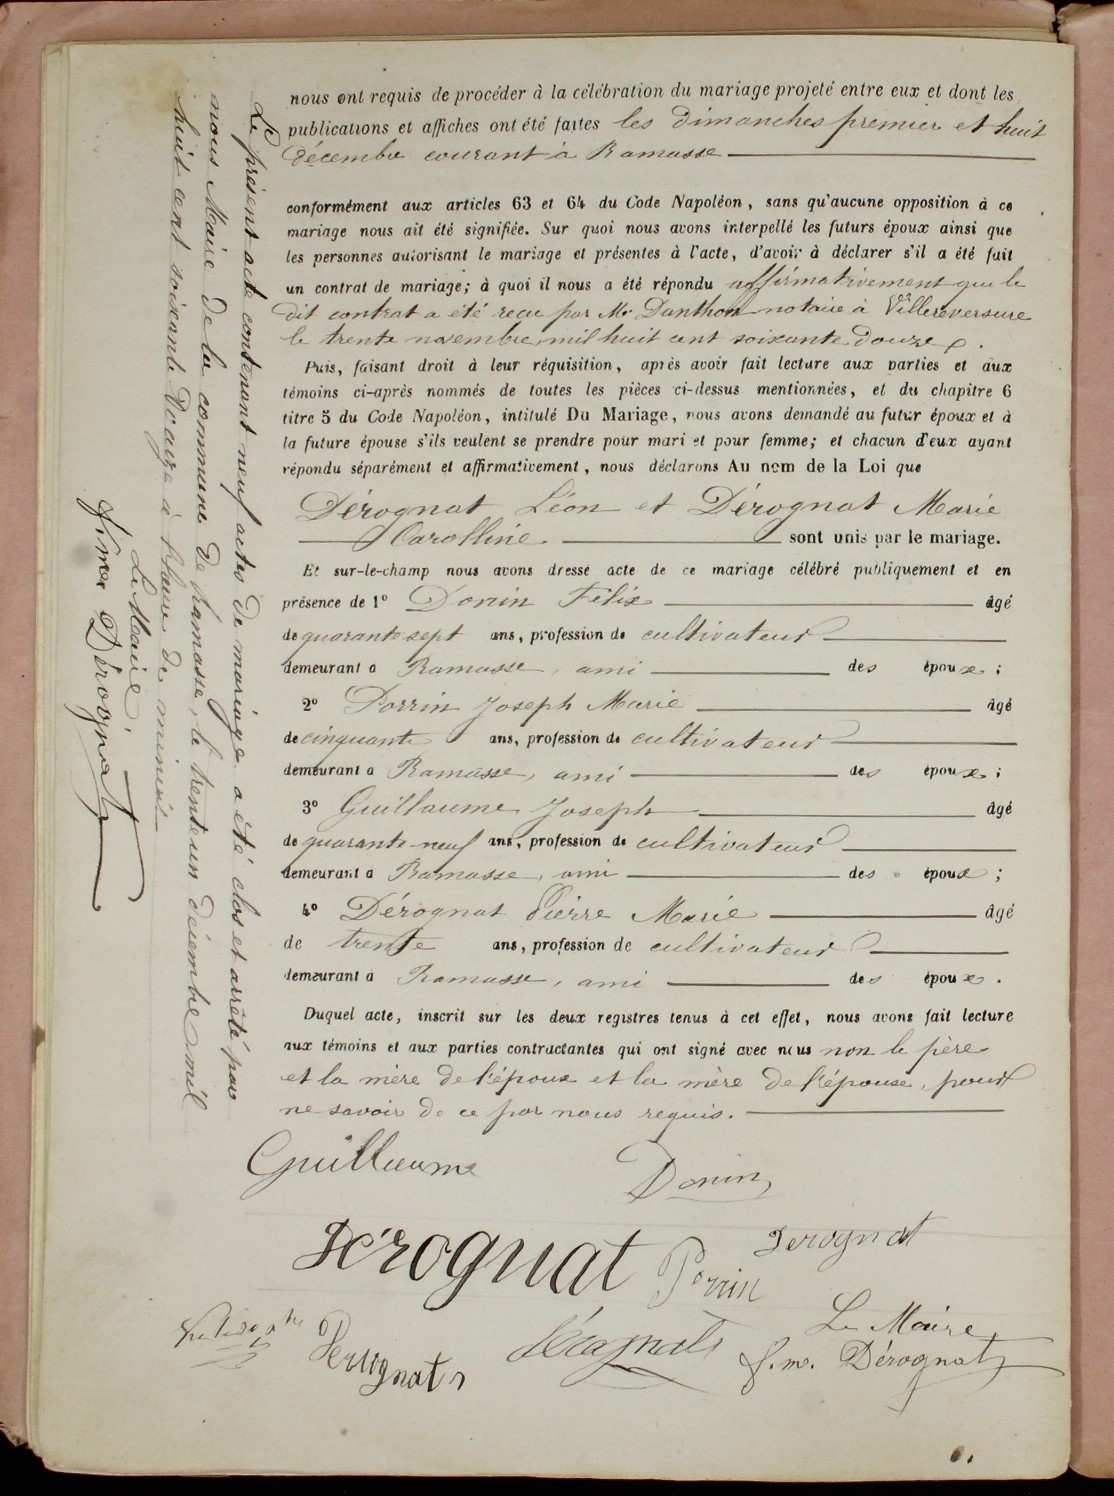 nous ont requis de procéder à la célébration du mariage projeté entre eux et dont les
publications et affiches ont été faites les dimanches premier et huit
décembre courant à Ramasse
conformément aux articles 63 et 64 du Code Napoléon, sans qu'aucune opposition à ce
mariage nous ait été signifiée. Sur quoi nous avons interpellé les futurs époux ainsi que
les personnes autorisant le mariage et présentes à l'acte, d'avoir à déclarer s'il a été fait
un contrat de mariage; à quoi il nous a été répondu affirmativement que le
dit contrat a été reçu par Me Danthon notaire à Villereversure
le trente novembre mil huit cent soixante douze.
Puis, faisant droit à leur réquisition, après avoir fait lecture aux parties et aux
témoins ci-après nommés de toutes les pièces ci-dessus mentionnées, et du chapitre 6
titre 5 du Code Napoléon, intitulé Du Mariage, nous avons demandé au futur époux et à
la future épouse s'ils veulent se prendre pour mari et pour femme; et chacun d'eux ayant
répondu séparément et affirmativement, nous déclarons Au nom de la Loi que
Dérognat Léon et Dérognat Marie
Carolline. sont unis par le mariage.
Et sur-le-champ nous avons dressé acte de ce mariage célébré publiquement et en
présence de 1° Donin Félix âgé
de quarante sept ans, profession de cultivateur
demeurant à Ramasse, ami des époux;
2° Porrin Joseph Marie âgé
de cinquante ans, profession de cultivateur
demeurant à Ramasse, ami des époux;
3° Guillaume Joseph âgé
de quarante-neuf ans, profession de cultivateur
demeurant à Ramasse, ami des époux;
4° Dérognat Pierre Marie âgé
de trente ans, profession de cultivateur
demeurant à Ramasse, ami des époux.
Duquel acte, inscrit sur les deux registres tenus à cet effet, nous avons fait lecture
aux témoins et aux parties contractantes qui ont signé avec nous non le père
et la mère de l'époux et la mère de l'épouse, pour
ne savoir de ce par nous requis.
Guillaume Donin
Dérognat Derognat
Porrin
Le Maire
Derognat Dérognat f.m. Dérognat
Le présent acte contenant neuf actes de mariage a été clos et arrêté par
nous Maire de la commune de Ramasse, le trente un décembre mil
huit cent soixante douze à l'heure de minuit
Le Maire,
Dérognat